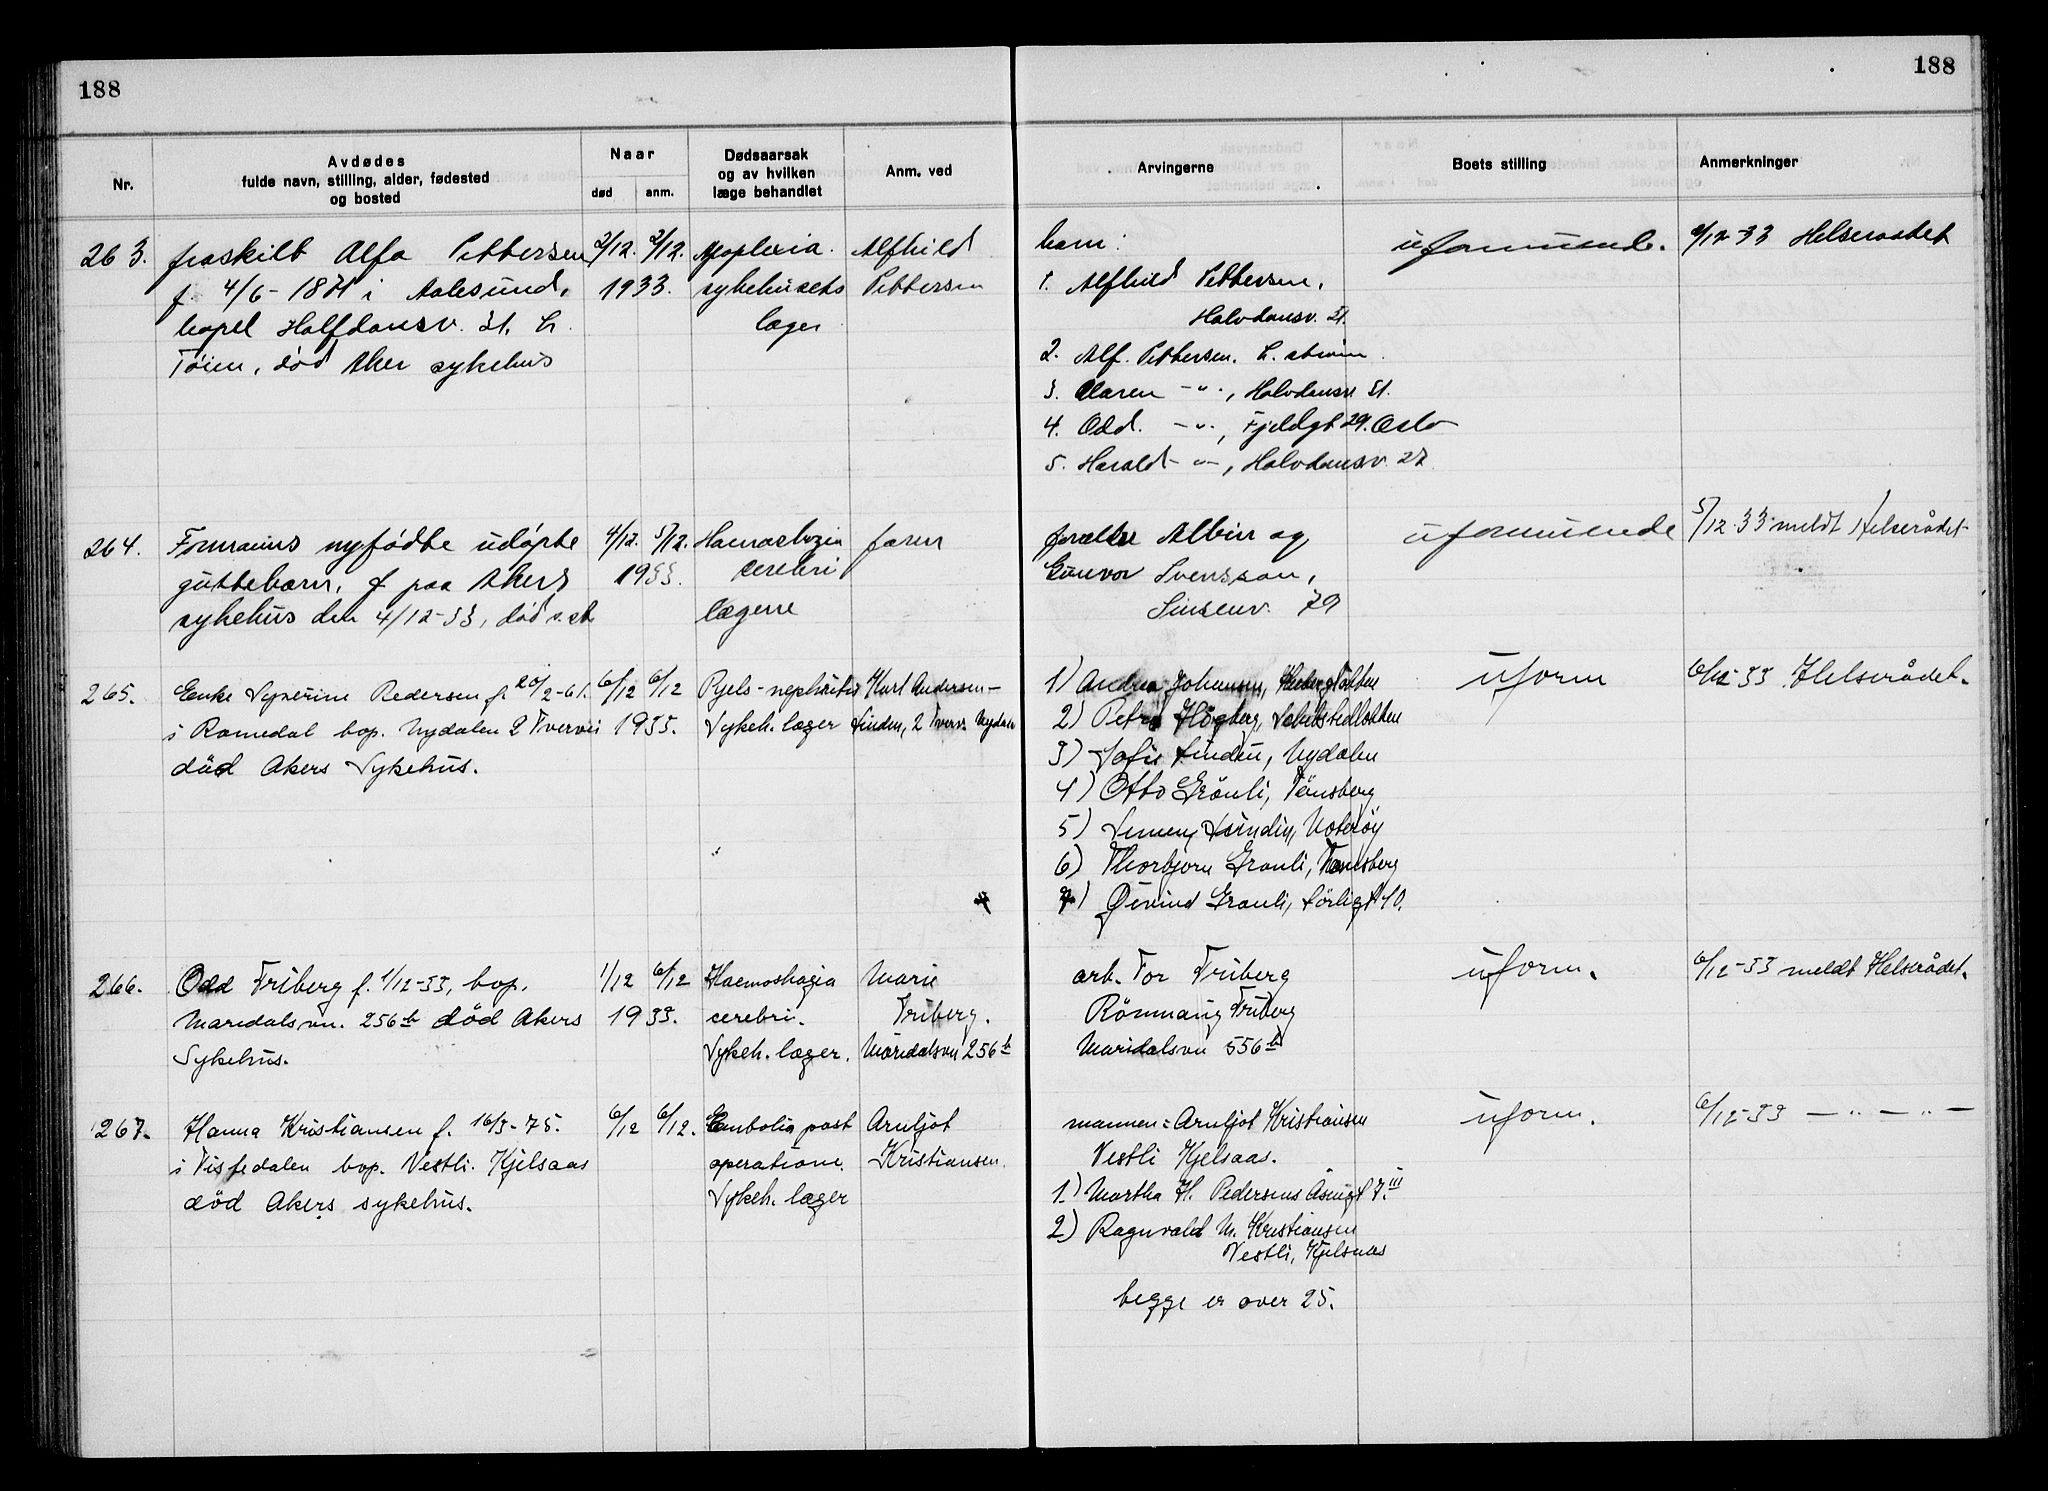 188
188
Nr.
Avdødes
fulde navn, stilling, alder, fødested
og bosted
Naar
død
anm.
Dødsaarsak
og av hvilken
læge behandlet
Anm. ved
Arvingerne
Boets stilling
Anmerkninger
263. fraskilt Alfa Pettersen 2/12. 2/12. Apoplexia. Alfhild
f. 4/6-1871 i Aalesund, 1933. sykehusets Pettersen
bopel Halfdansv. 31. L. læger
Tøien, død Aker sykehus
barn:
1. Alfhild Pettersen,
Halvdansv. 31.
2. Alf. Pettersen. L.
3. Karen -"-, Halvdansv 31.
4. Odd. -"-, Fjeldgt 29. Oslo
5. Harald -"-, Halvdansv. 27.
uformuende. 2/12-33 Helseraadet
264. nyfødte udøpte 4/12. 5/12. Haemorhagia faren
guttebarn, f paa Akers 1933. cerebri
sykehus den 4/12-33, død s.st. lægerne
forældre Albin og
Gunvor Svensson,
Sinsenv. 79
uformuende 5/12-33 meldt Helserådet
265. Enke Syverine Pedersen f. 20/2-61. 6/12 6/12 Pyelo-nephritis Kurt Andersen-
i Romedal bop. Nydalen 2 Tvervei 1933. Sykeh. læger Linden, 2 Tverv. Nydalen
död Akers Sykehus.
1) Andrea Johansen,
2) Petra Högberg,
3) Sofie Linden, Nydalen
4) Otto Grönli, Tönsberg
5) Nöteröy
6) Thorbjørn Grønli, Tønsberg
7) Øivind Grønli, 10.
uform 6/12-33 Helserådet.
266. Odd Friberg f. 1/12-33, bop. 1/12 6/12 Haemorhagia Marie
Maridalsvn. 256b död Akers 1933. cerebri. Friberg.
Sykehus. Sykeh. læger. Maridalsvn 256b
arb. Tor Friberg
Rönnaug Friberg
Maridalsvn 556b
uform. 6/12-33 meldt Helserådet.
267. Hanna Kristiansen f. 16/3-75. 6/12 6/12. Embolia post Arnljot
i Tistedalen bop. Vestli. Kjelsaas operatione. Kristiansen.
död Akers sykehus. Sykeh. læger
mannen = Arnljot Kristiansen
Vestli Kjelsaas.
1.) Martha H. Pedersens Åsengt 7.III
2) Ragnvald M. Kristiansen
Vestli, Kjelsaas
begge er over 25.
uform. 6/12-33 — " — " —